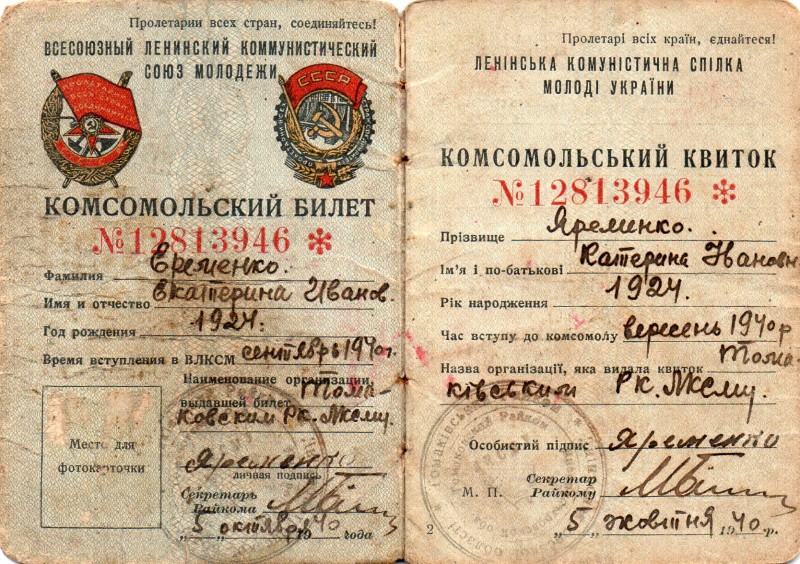 Пролетарии всех стран, соединяйтесь!
ВСЕСОЮЗНЫЙ ЛЕНИНСКИЙ КОММУНИСТИЧЕСКИЙ
СОЮЗ МОЛОДЕЖИ
СССР
КОМСОМОЛЬСКИЙ БИЛЕТ
№12813946 *
Фамилия Еременко.
Имя и отчество Екатерина Иванов.
Год рождения 1924.
Время вступления в ВЛКСМ сентябрь 1940г.
Наименование организации,
выдавшей билет Тома-
ковским Рк. Лксму.
Место для
фотокарточки
Яременко
личная подпись
Секретарь
Райкома
„5" октября 1940 года
Пролетарі всіх країн, єднайтеся!
ЛЕНІНСЬКА КОМУНІСТИЧНА СПІЛКА
МОЛОДІ УКРАЇНИ
КОМСОМОЛЬСЬКИЙ КВИТОК
№12813946 *
Прізвище Яременко.
Ім'я і по-батькові Катерина Івановн
Рік народження 1924.
Час вступу до комсомолу вересень 1940р
Назва організації, яка видала квиток Тома-
ківським Рк. Лксму.
Особистий підпис Яременко
М. П.
Секретар
Райкому
2 „5" жовтня 1940 р.